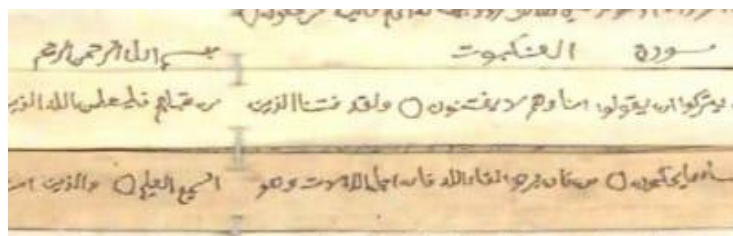 سورة العنكبوت بسم الله الرحمن الرحيم
يتركوا ان يقولوا امنا وهم لا يفتنون ○ ولقد فتنا الذين من قبلهم فليعلمن الله الذين
ساء ما يحكمون ○ من كان يرجو لقاء الله فان اجل الله لات وهو السميع العليم ○ والذين امنوا